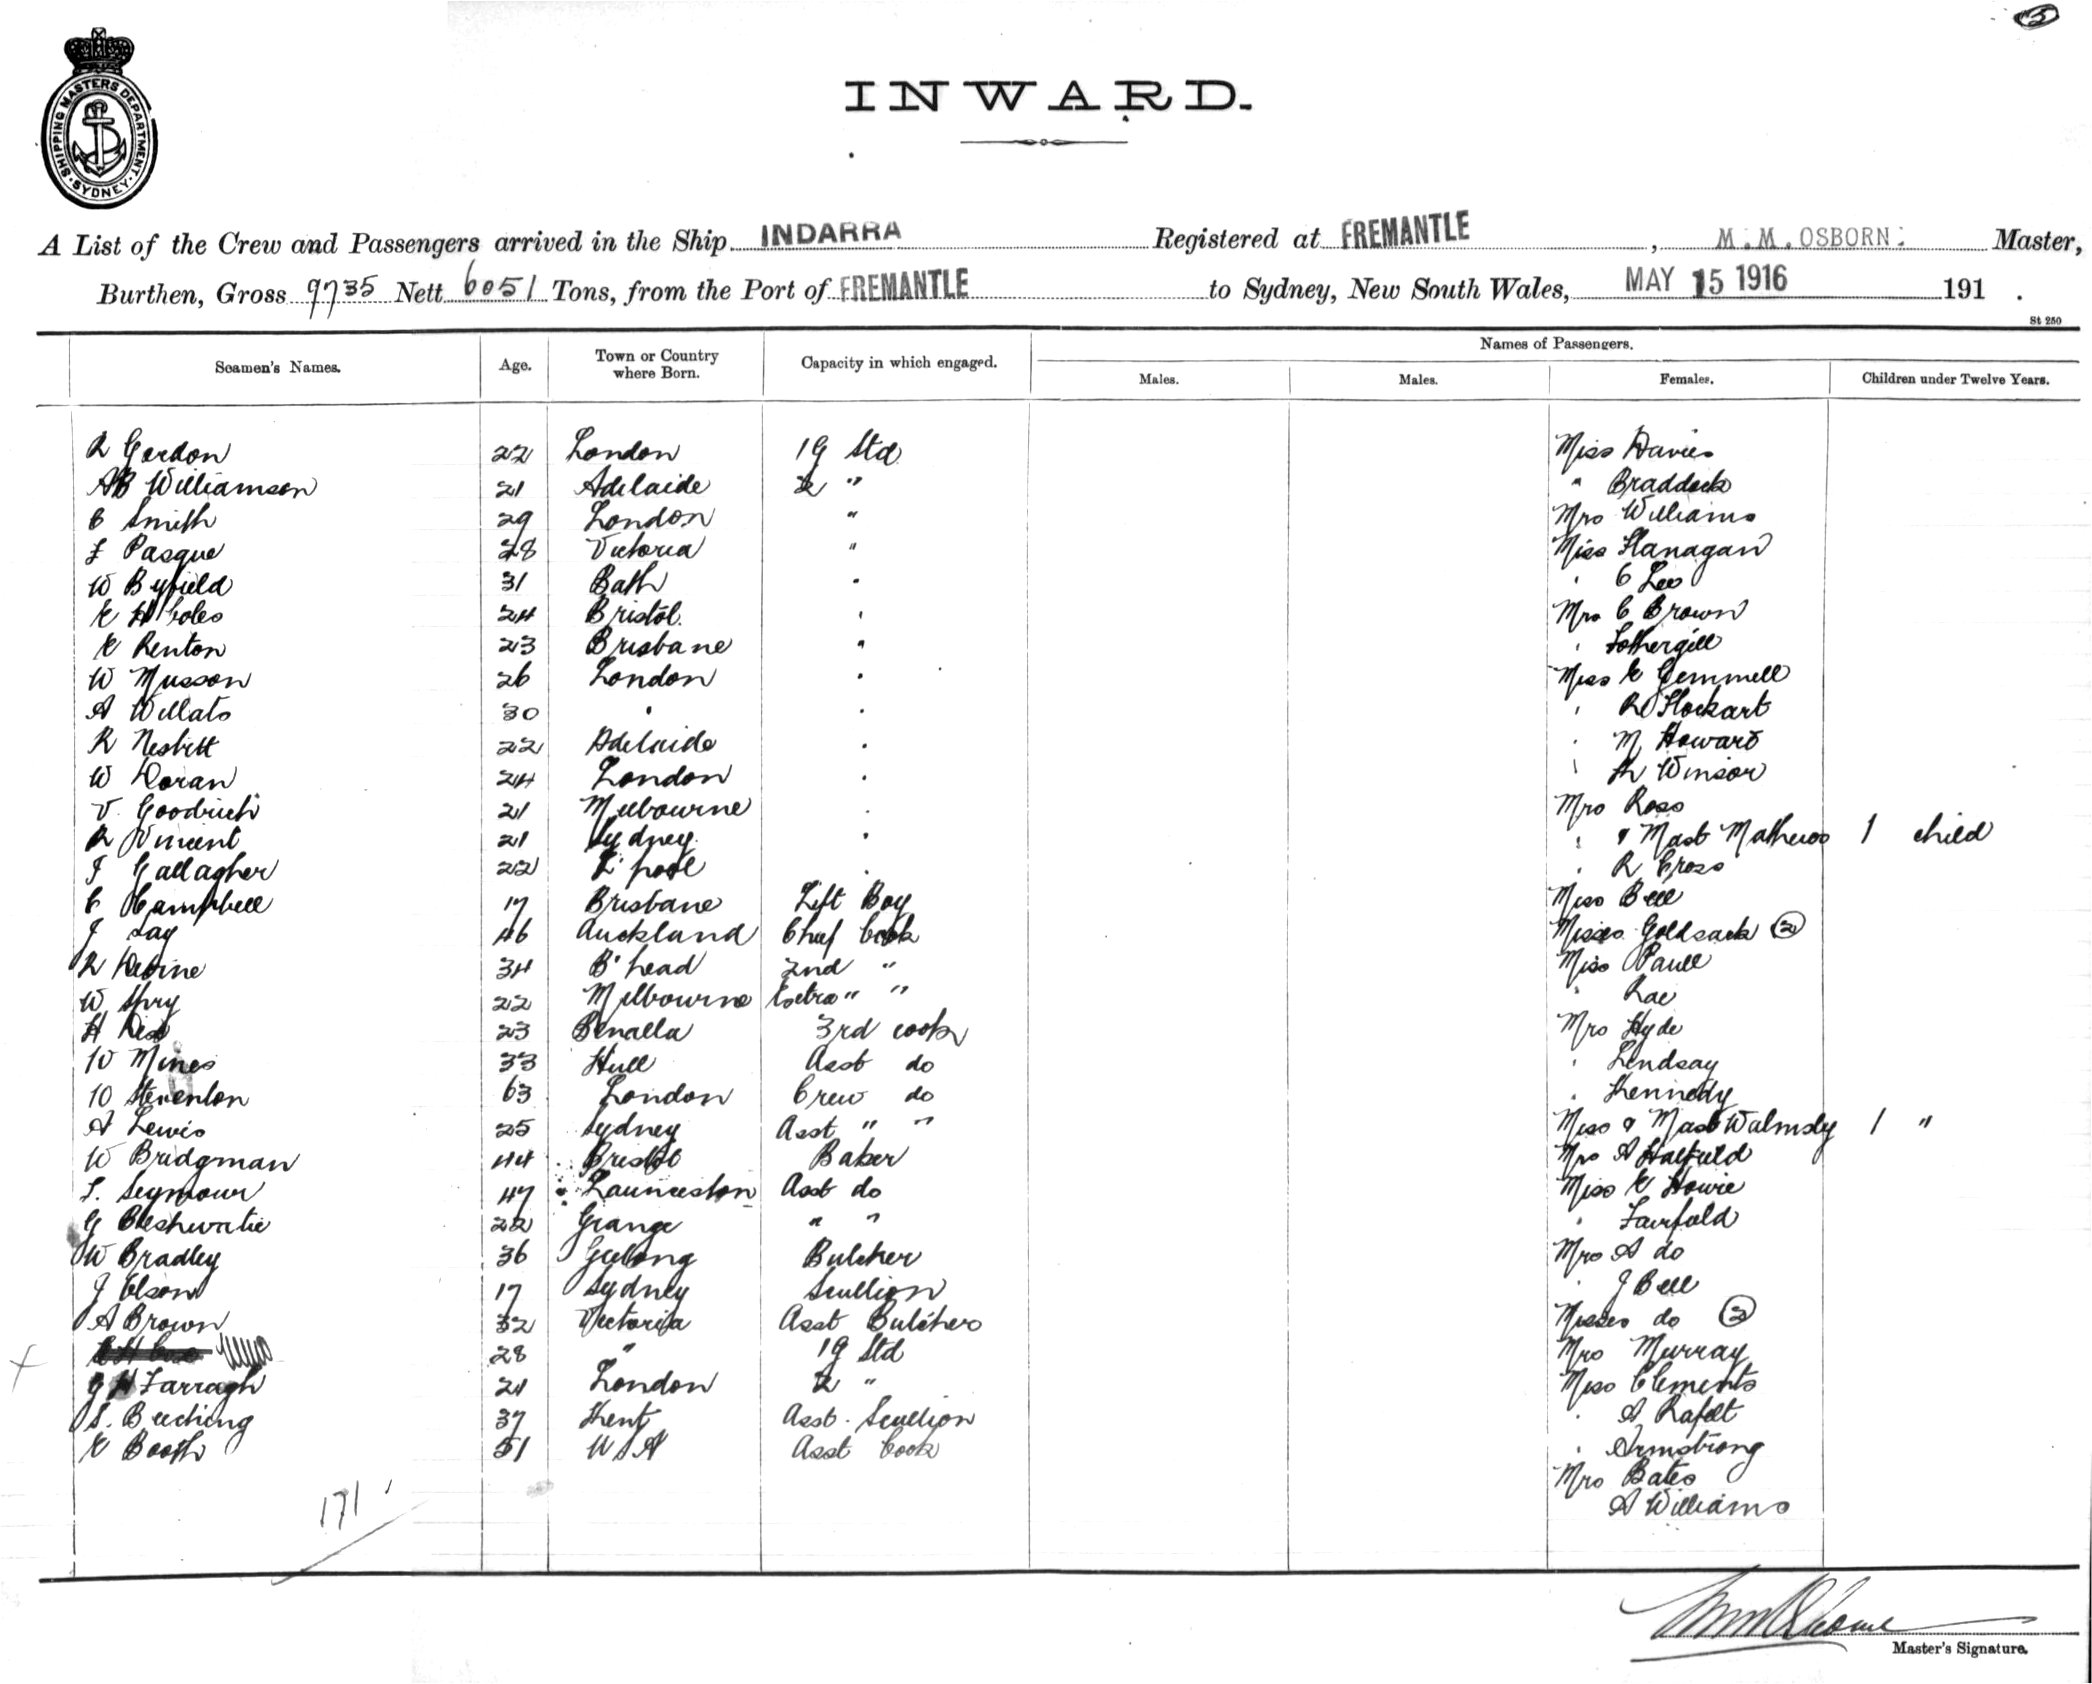 5
SHIPPING MASTERS DEPARTMENT
SYDNEY
INWARD.
A List of the Crew and Passengers arrived in the Ship INDARRA Registered at FREMANTLE, M.M. OSBORN. Master,
Burthen, Gross 9735 Nett 6051 Tons, from the Port of FREMANTLE to Sydney, New South Wales, MAY 15 1916 191 .
St 250
Seamen's Names. Age. Town or Country where Born. Capacity in which engaged. Names of Passengers.
Males. Males. Females. Children under Twelve Years.
R Gordon 22 London 1g Std Miss Davies
AB Williamson 21 Adelaide 2 " " Braddock
C Smith 29 London " Mrs Williams
F Pasque 28 Victoria " Miss Flanagan
W Byfield 31 Bath " " C Lee
E H Coles 24 Bristol " Mrs C Brown
E Renton 23 Brisbane " " Fothergill
W Musson 26 London " Miss E Gemmell
A Willats 30 " " " R Flockart
R Nesbitt 22 Adelaide " " M Howard
W Doran 24 London " " Winsor
V. Goodrich 21 Melbourne " Mrs Ross
R Vincent 21 Sydney " " & Mast Mathews 1 child
F Gallagher 22 L'pool " " R Cross
C Campbell 17 Brisbane Lift Boy Miss Bell
J Lay 46 Auckland Chief Cook Misses Goldsack 2
R Devine 34 B'head 2nd " Miss Paull
W Spry 22 Melbourne Extra " " " Rae
H 23 Benalla 3rd cook Mrs Hyde
W Mines 33 Hull Asst do " Lindsay
W Steventon 63 London Crew do " Kennedy
A Lewis 25 Sydney Asst " " Miss & Mast Walmsly 1 "
W Bridgman 44 Bristol Baker Mrs A Hatfield
S. Seymour 47 Launceston Asst do Miss E Howie
G 22 Grange " " " Fairfield
W Bradley 36 Geelong Butcher Mrs A do
J Olson 17 Sydney Scullion " J Bell
A Brown 32 Victoria Asst Butcher Misses do 2
28 " 1g Std Mrs Murray
G H Farragh 21 London 2 " Miss Clements
S. Beeching 37 Kent Asst. Scullion " A
E Booth 51 W A Asst Cook " Armstrong
Mrs Bates
A Williams
171
Master's Signature.